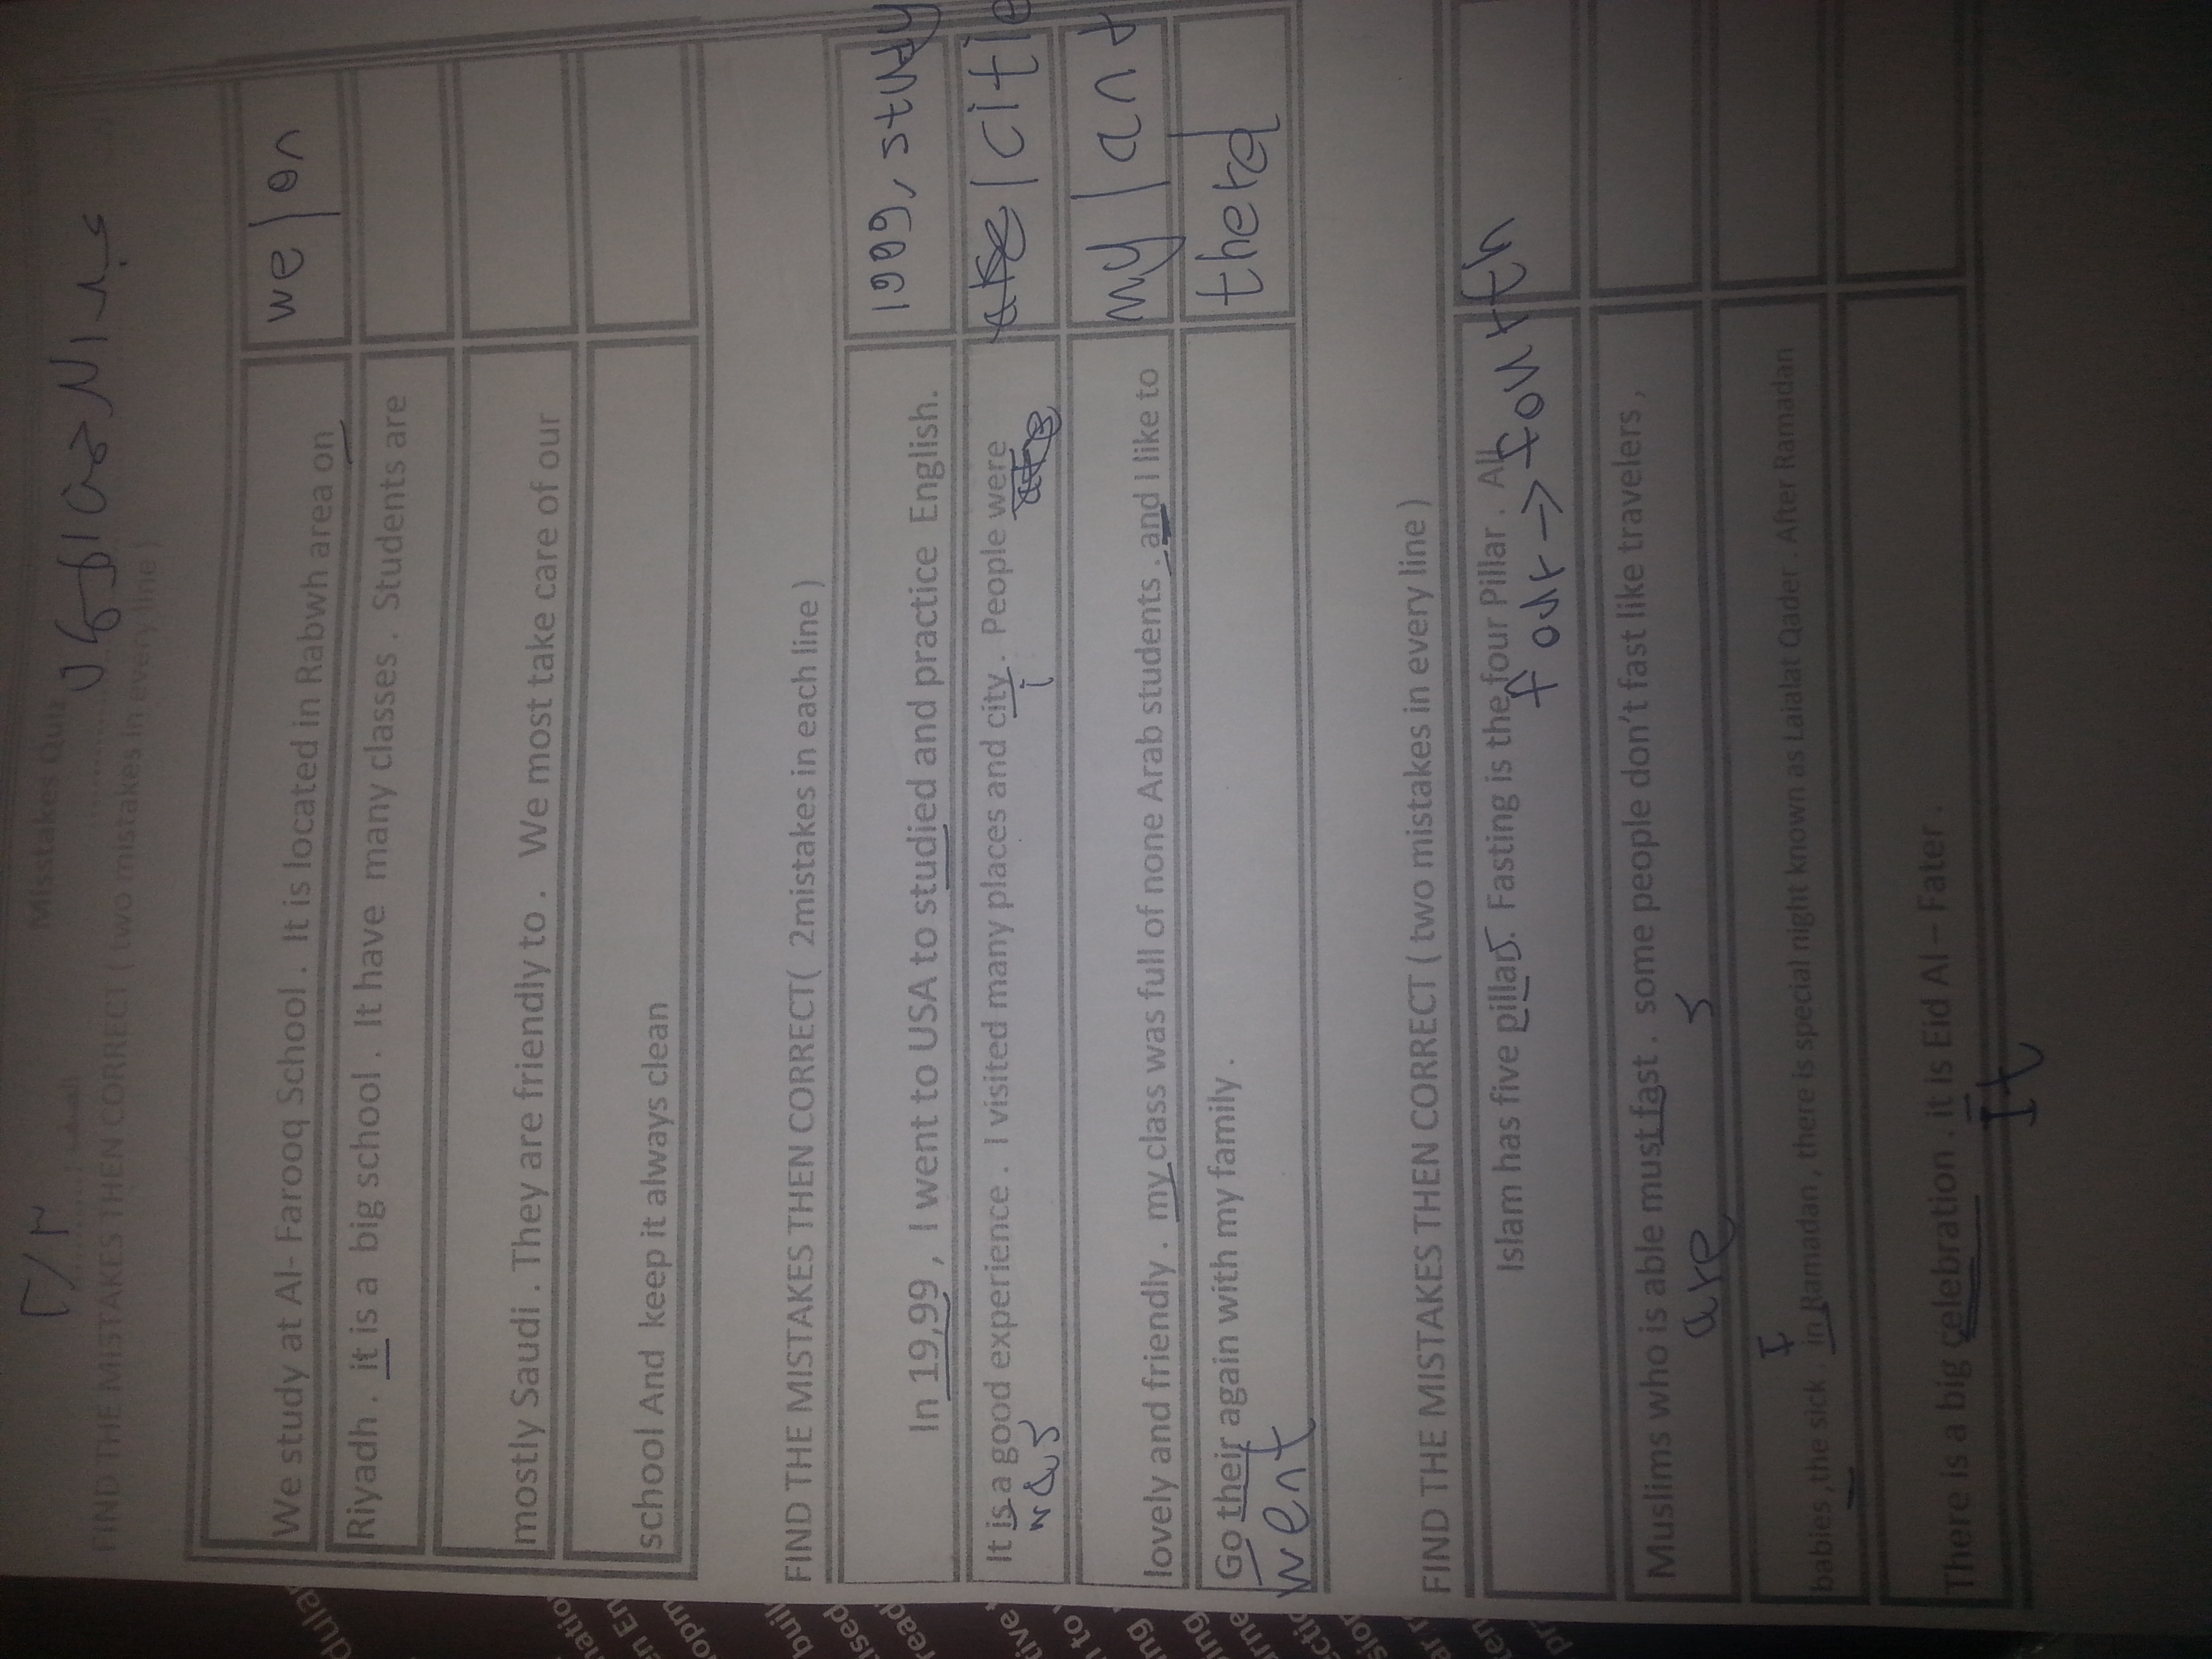 ٢/٣
Misstakes Quiz
الصف
FIND THE MISTAKES THEN CORRECT ( two mistakes in every line )
We study at Al- Farooq School . It is located in Rabwh area on
we | on
Riyadh . it is a big school . It have many classes . Students are
mostly Saudi . They are friendly to . We most take care of our
school And keep it always clean
FIND THE MISTAKES THEN CORRECT( 2mistakes in each line )
In 19,99 , I went to USA to studied and practice English.
1999, study
It is a good experience . I visited many places and city . People were
| citie
i
lovely and friendly . my class was full of none Arab students . and I like to
my | and
Go their again with my family .
there
went
FIND THE MISTAKES THEN CORRECT ( two mistakes in every line )
Islam has five pillars. Fasting is the four Pillar . All
four → fourth
Muslims who is able must fast . some people don't fast like travelers ,
are s
I
babies ,the sick . in Ramadan , there is special night known as Laialat Qader . After Ramadan
There is a big celebration . it is Eid Al – Fater .
It